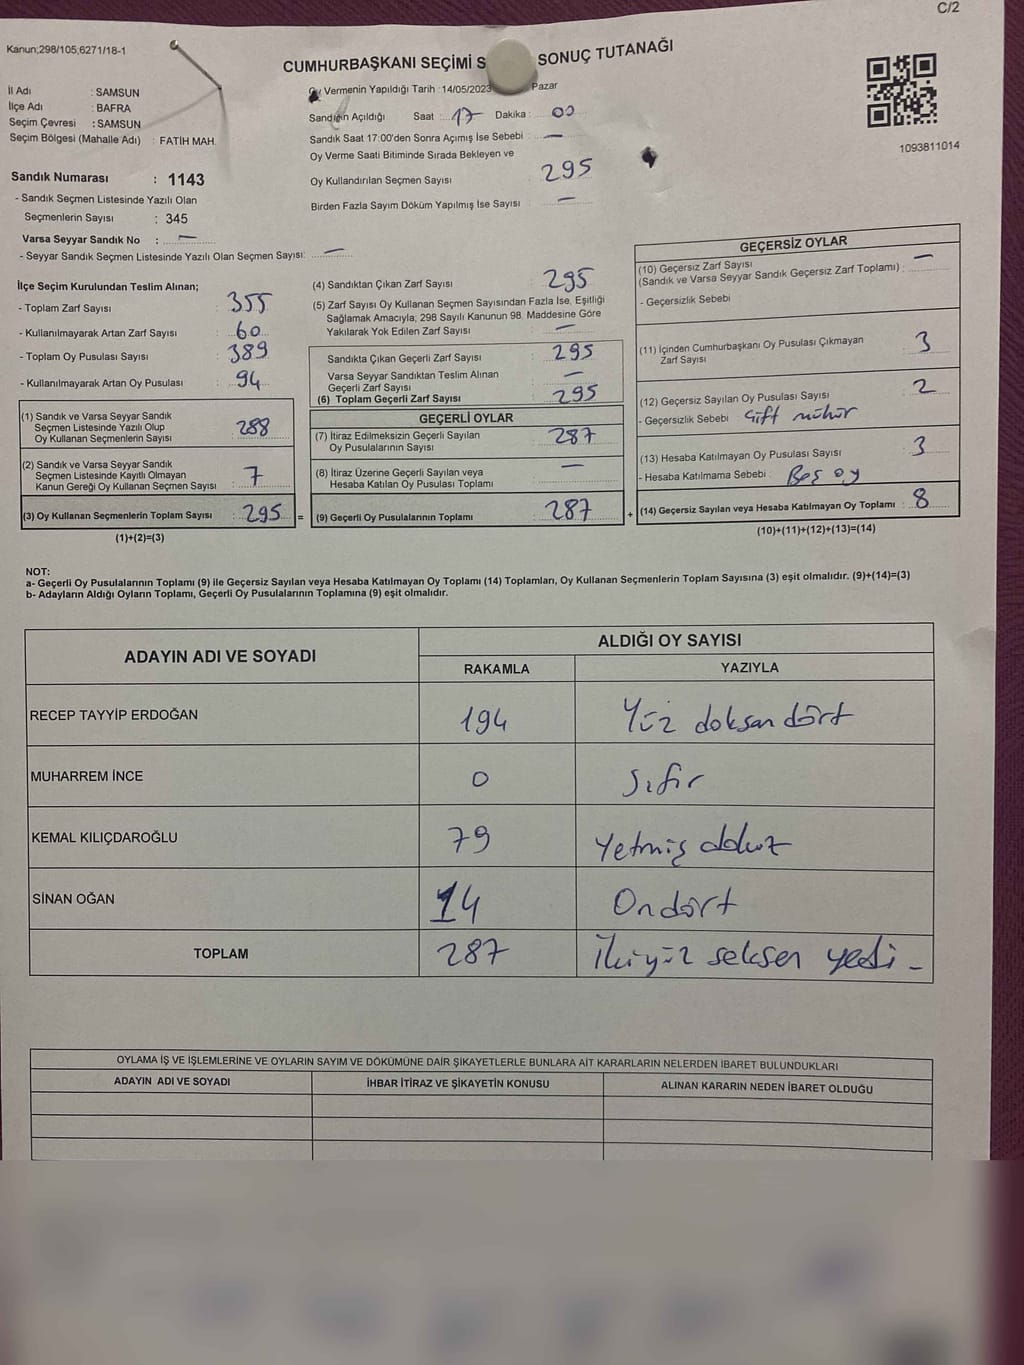 C/2
Kanun;298/105,6271/18-1
CUMHURBAŞKANI SEÇİMİ S SONUÇ TUTANAĞI
İl Adı : SAMSUN
İlçe Adı : BAFRA
Seçim Çevresi : SAMSUN
Seçim Bölgesi (Mahalle Adı) : FATİH MAH.
Oy Vermenin Yapıldığı Tarih :14/05/2023 Pazar
Sandığın Açıldığı Saat : 17 Dakika : 00
Sandık Saat 17:00'den Sonra Açımış İse Sebebi : —
Oy Verme Saati Bitiminde Sırada Bekleyen ve
Oy Kullandırılan Seçmen Sayısı : 295
Birden Fazla Sayım Döküm Yapılmış İse Sayısı : —
1093811014
Sandık Numarası : 1143
- Sandık Seçmen Listesinde Yazılı Olan
Seçmenlerin Sayısı : 345
Varsa Seyyar Sandık No : —
- Seyyar Sandık Seçmen Listesinde Yazılı Olan Seçmen Sayısı: —
İlçe Seçim Kurulundan Teslim Alınan;
- Toplam Zarf Sayısı : 355
- Kullanılmayarak Artan Zarf Sayısı : 60
- Toplam Oy Pusulası Sayısı : 389
- Kullanılmayarak Artan Oy Pusulası : 94
(1) Sandık ve Varsa Seyyar Sandık
Seçmen Listesinde Yazılı Olup
Oy Kullanan Seçmenlerin Sayısı : 288
(2) Sandık ve Varsa Seyyar Sandık
Seçmen Listesinde Kayıtlı Olmayan
Kanun Gereği Oy Kullanan Seçmen Sayısı : 7
(3) Oy Kullanan Seçmenlerin Toplam Sayısı : 295 =
(1)+(2)=(3)
(4) Sandıktan Çıkan Zarf Sayısı : 295
(5) Zarf Sayısı Oy Kullanan Seçmen Sayısından Fazla İse, Eşitliği
Sağlamak Amacıyla; 298 Sayılı Kanunun 98. Maddesine Göre
Yakılarak Yok Edilen Zarf Sayısı : —
Sandıkta Çıkan Geçerli Zarf Sayısı : 295
Varsa Seyyar Sandıktan Teslim Alınan
Geçerli Zarf Sayısı : —
(6) Toplam Geçerli Zarf Sayısı : 295
GEÇERLİ OYLAR
(7) İtiraz Edilmeksizin Geçerli Sayılan
Oy Pusulalarının Sayısı : 287
(8) İtiraz Üzerine Geçerli Sayılan veya
Hesaba Katılan Oy Pusulası Toplamı : —
(9) Geçerli Oy Pusulalarının Toplamı : 287 +
GEÇERSİZ OYLAR
(10) Geçersiz Zarf Sayısı
(Sandık ve Varsa Seyyar Sandık Geçersiz Zarf Toplamı) : —
- Geçersizlik Sebebi
(11) İçinden Cumhurbaşkanı Oy Pusulası Çıkmayan
Zarf Sayısı : 3
(12) Geçersiz Sayılan Oy Pusulası Sayısı : 2
- Geçersizlik Sebebi : Çift mühür
(13) Hesaba Katılmayan Oy Pusulası Sayısı : 3
- Hesaba Katılmama Sebebi : Boş oy
(14) Geçersiz Sayılan veya Hesaba Katılmayan Oy Toplamı : 8
(10)+(11)+(12)+(13)=(14)
NOT:
a- Geçerli Oy Pusulalarının Toplamı (9) ile Geçersiz Sayılan veya Hesaba Katılmayan Oy Toplamı (14) Toplamları, Oy Kullanan Seçmenlerin Toplam Sayısına (3) eşit olmalıdır. (9)+(14)=(3)
b- Adayların Aldığı Oyların Toplamı, Geçerli Oy Pusulalarının Toplamına (9) eşit olmalıdır.
ADAYIN ADI VE SOYADI ALDIĞI OY SAYISI
RAKAMLA YAZIYLA
RECEP TAYYİP ERDOĞAN 194 Yüz doksan dört
MUHARREM İNCE 0 Sıfır
KEMAL KILIÇDAROĞLU 79 Yetmiş dokuz
SİNAN OĞAN 14 Ondört
TOPLAM 287 İkiyüz seksen yedi -
OYLAMA İŞ VE İŞLEMLERİNE VE OYLARIN SAYIM VE DÖKÜMÜNE DAİR ŞİKAYETLERLE BUNLARA AİT KARARLARIN NELERDEN İBARET BULUNDUKLARI
ADAYIN ADI VE SOYADI İHBAR İTİRAZ VE ŞİKAYETİN KONUSU ALINAN KARARIN NEDEN İBARET OLDUĞU